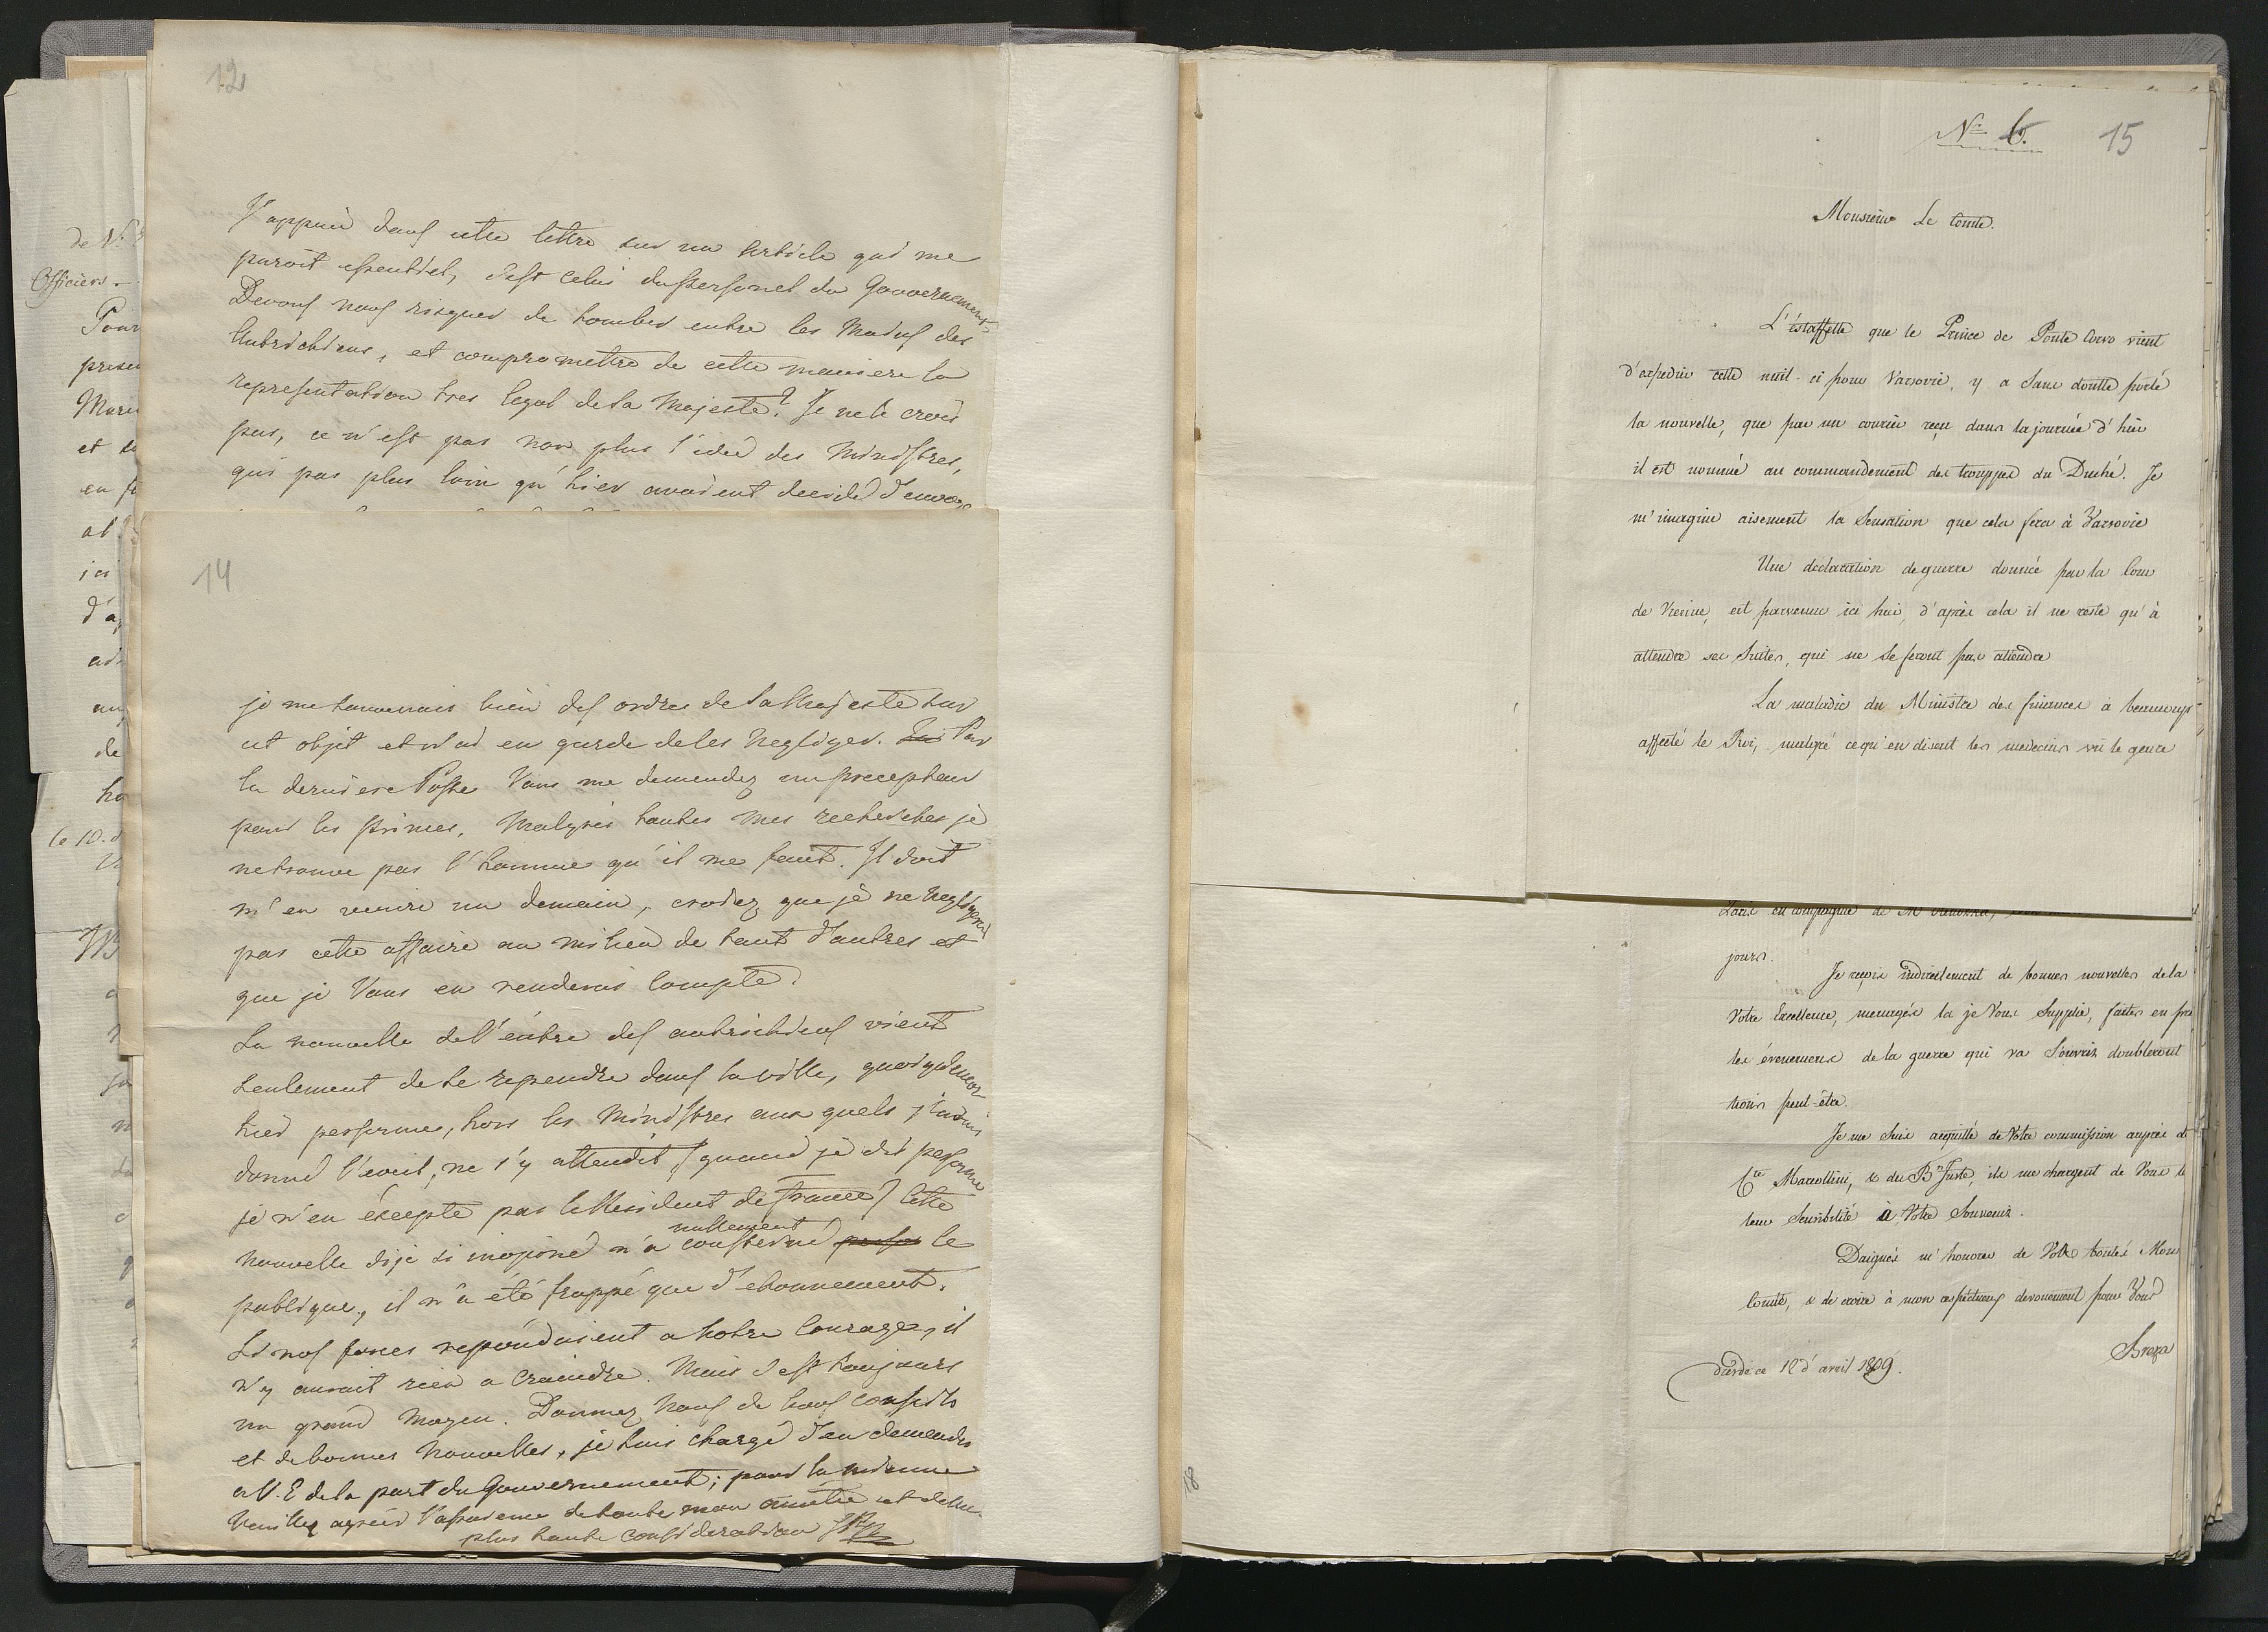 12
J'appuie dans cette lettre sur un article qui me
paroit essentiel, c'est celui du personel du Gouvernement.
Devons nous risquer de tomber entre les Mains des
Autrichiens, et compromettre de cette maniere la
representation tres legal de Sa Majesté? Je ne le crois
pas, ce n'est pas non plus l'idee des Ministres,
qui pas plus loin qu'hier avoient decidé d'
14
je me bien des ordres de Sa Majesté sur
cet objet et n'ai en garde de les negliger. Par
la derniere Poste Vous me demendez un precepteur
pour les Princes, Malgrés toutes mes recherches je
ne trouve pas l'homme qu'il me faut. Il doit
m'en venire un demain, croiez que je ne negligerai
pas cette affaire au milieu de tant d'autres et
que je Vous en renderai Compte.
La nouvelle de l'entre des autrichiens vient
seulement de se rependre dans la ville, quoiqu'encor
hier personne, hors les Ministres aux quels j'avais
donné l'eveil, ne s'y attendit (quand je dis personne
je n'en excepte pas le Resident de france) Cette
nouvelle dije si inopiné n'a nullement consterné le
publique, il n'a été frappé que d'etonnement.
Si nos forces repondaient a notre Courage, il
n'y aurait rien a Craindre. Mais c'est toujours
un grand Moyen. Donnez Nous de bons conseils
et de bonnes Nouvelles, je suis chargé d'en demender
a V. E de la part du Gouvernement; pour la mienne
Veuillez agréer l'assurence de toute mon amitié et de la
plus haute consideration
de
Officiers.
et
en
ici
de
le 10.
No. 6. 15
Monsieur Le Comte.
L'éstaffette que le Prince de Ponte Corvo vient
d'expedier cette nuit-ci pour Varsovie, y a sans doutte porté
la nouvelle, que par un courier reçu dans la journée d'hier
il est nommé au commandement des trouppes du Duché. Je
m'imagine aisement la Sensation que cela fera à Varsovie
Une declaration de guerre donnée par la Cour
de Vienne, est parvenue ici hier, d'après cela il ne reste qu'à
attendre ses Suites, qui ne se feront pas attendre
La maladie du Ministre des finances a beaucoup
affecté le Roi, malgré ce qu'en disent les medecins vu le genre
en compagnie de Mr
jours.
Je reçois indirectement de bonnes nouvelles de la
Votre Excellence, menagés la je Vous Supplie, faites en
les évenemens de la guerre qui va S'ouvrir doubleront
peut-être.
Je me Suis acquitté de Votre commission auprès de
Cte Marcollini, & du Bn Juste, ils me chargent de Vous
leur Sensibilité à Votre Souvenir.
Daignés m'honorer de Votre bonté Mon
Comte, & de croire à mon respectueux devouement pour Vous
Breza
Dresde ce 12 d'avril 1809.
18